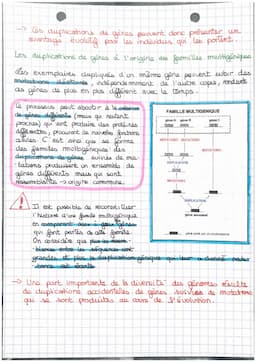 -> Ces duplications de gènes peuvent donc présenter un
avantage évolutif pour les individus qui les portent.
Les duplications de gènes à l'origine des familles multigéniques
Les exemplaires dupliqués d'un même gène peuvent subir des
mutations aléatoires, indépendamment de l'autre copie, rendant
ces gènes de plus en plus différents avec le temps.
Ce processus peut aboutir à la
de gènes différents (mais qui restent
proches) qui vont produire des protéines
différentes, pouvant de nouvelles fonctions
C'est ainsi que se forme
des familles multigéniques: des
duplications de gènes suivies de mu-
tations produisent un ensemble de
gènes différents mais qui sont
ressemblants -> origine commune.
FAMILLE MULTIGENIQUE
MUTATIONS
DUPLICATION
DUPLICATION
Il est possible de reconstituer
l'histoire d'une famille multigénique
en comparant les gènes
qui font parties de cette famille.
On considère que plus la
entre les séquences est
grande et plus la duplication génique qui leur a donné nais-
sance est
-> Une part importante de la diversité des génomes résulte
de duplications accidentelles de gènes suivies de mutations
qui se sont produites au cours de l'évolution.